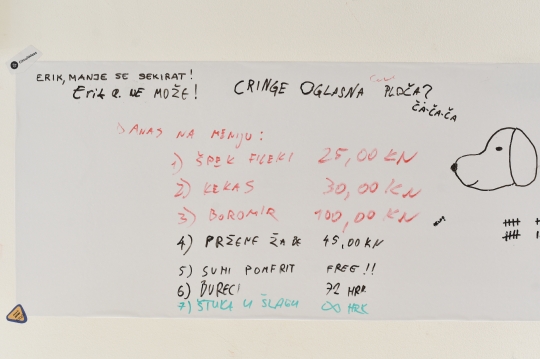 ERIK, MANJE SE SEKIRAT!
Erik Q. NE MOŽE!
CRINGE OGLASNA PLOČA?
ČA-ČA-ČA
DANAS NA MENIJU:
1) ŠPEK FILEKI 25,00 KN
2) KEKAS 30,00 KN
3) BOROMIR 100,00 KN
4) PRŽENE ŽABE 45,00 KN
5) SUHI POMFRIT FREE!!
6) BURECI 72 HRK
7) ŠTUKA U ŠLAGU ∞ HRK